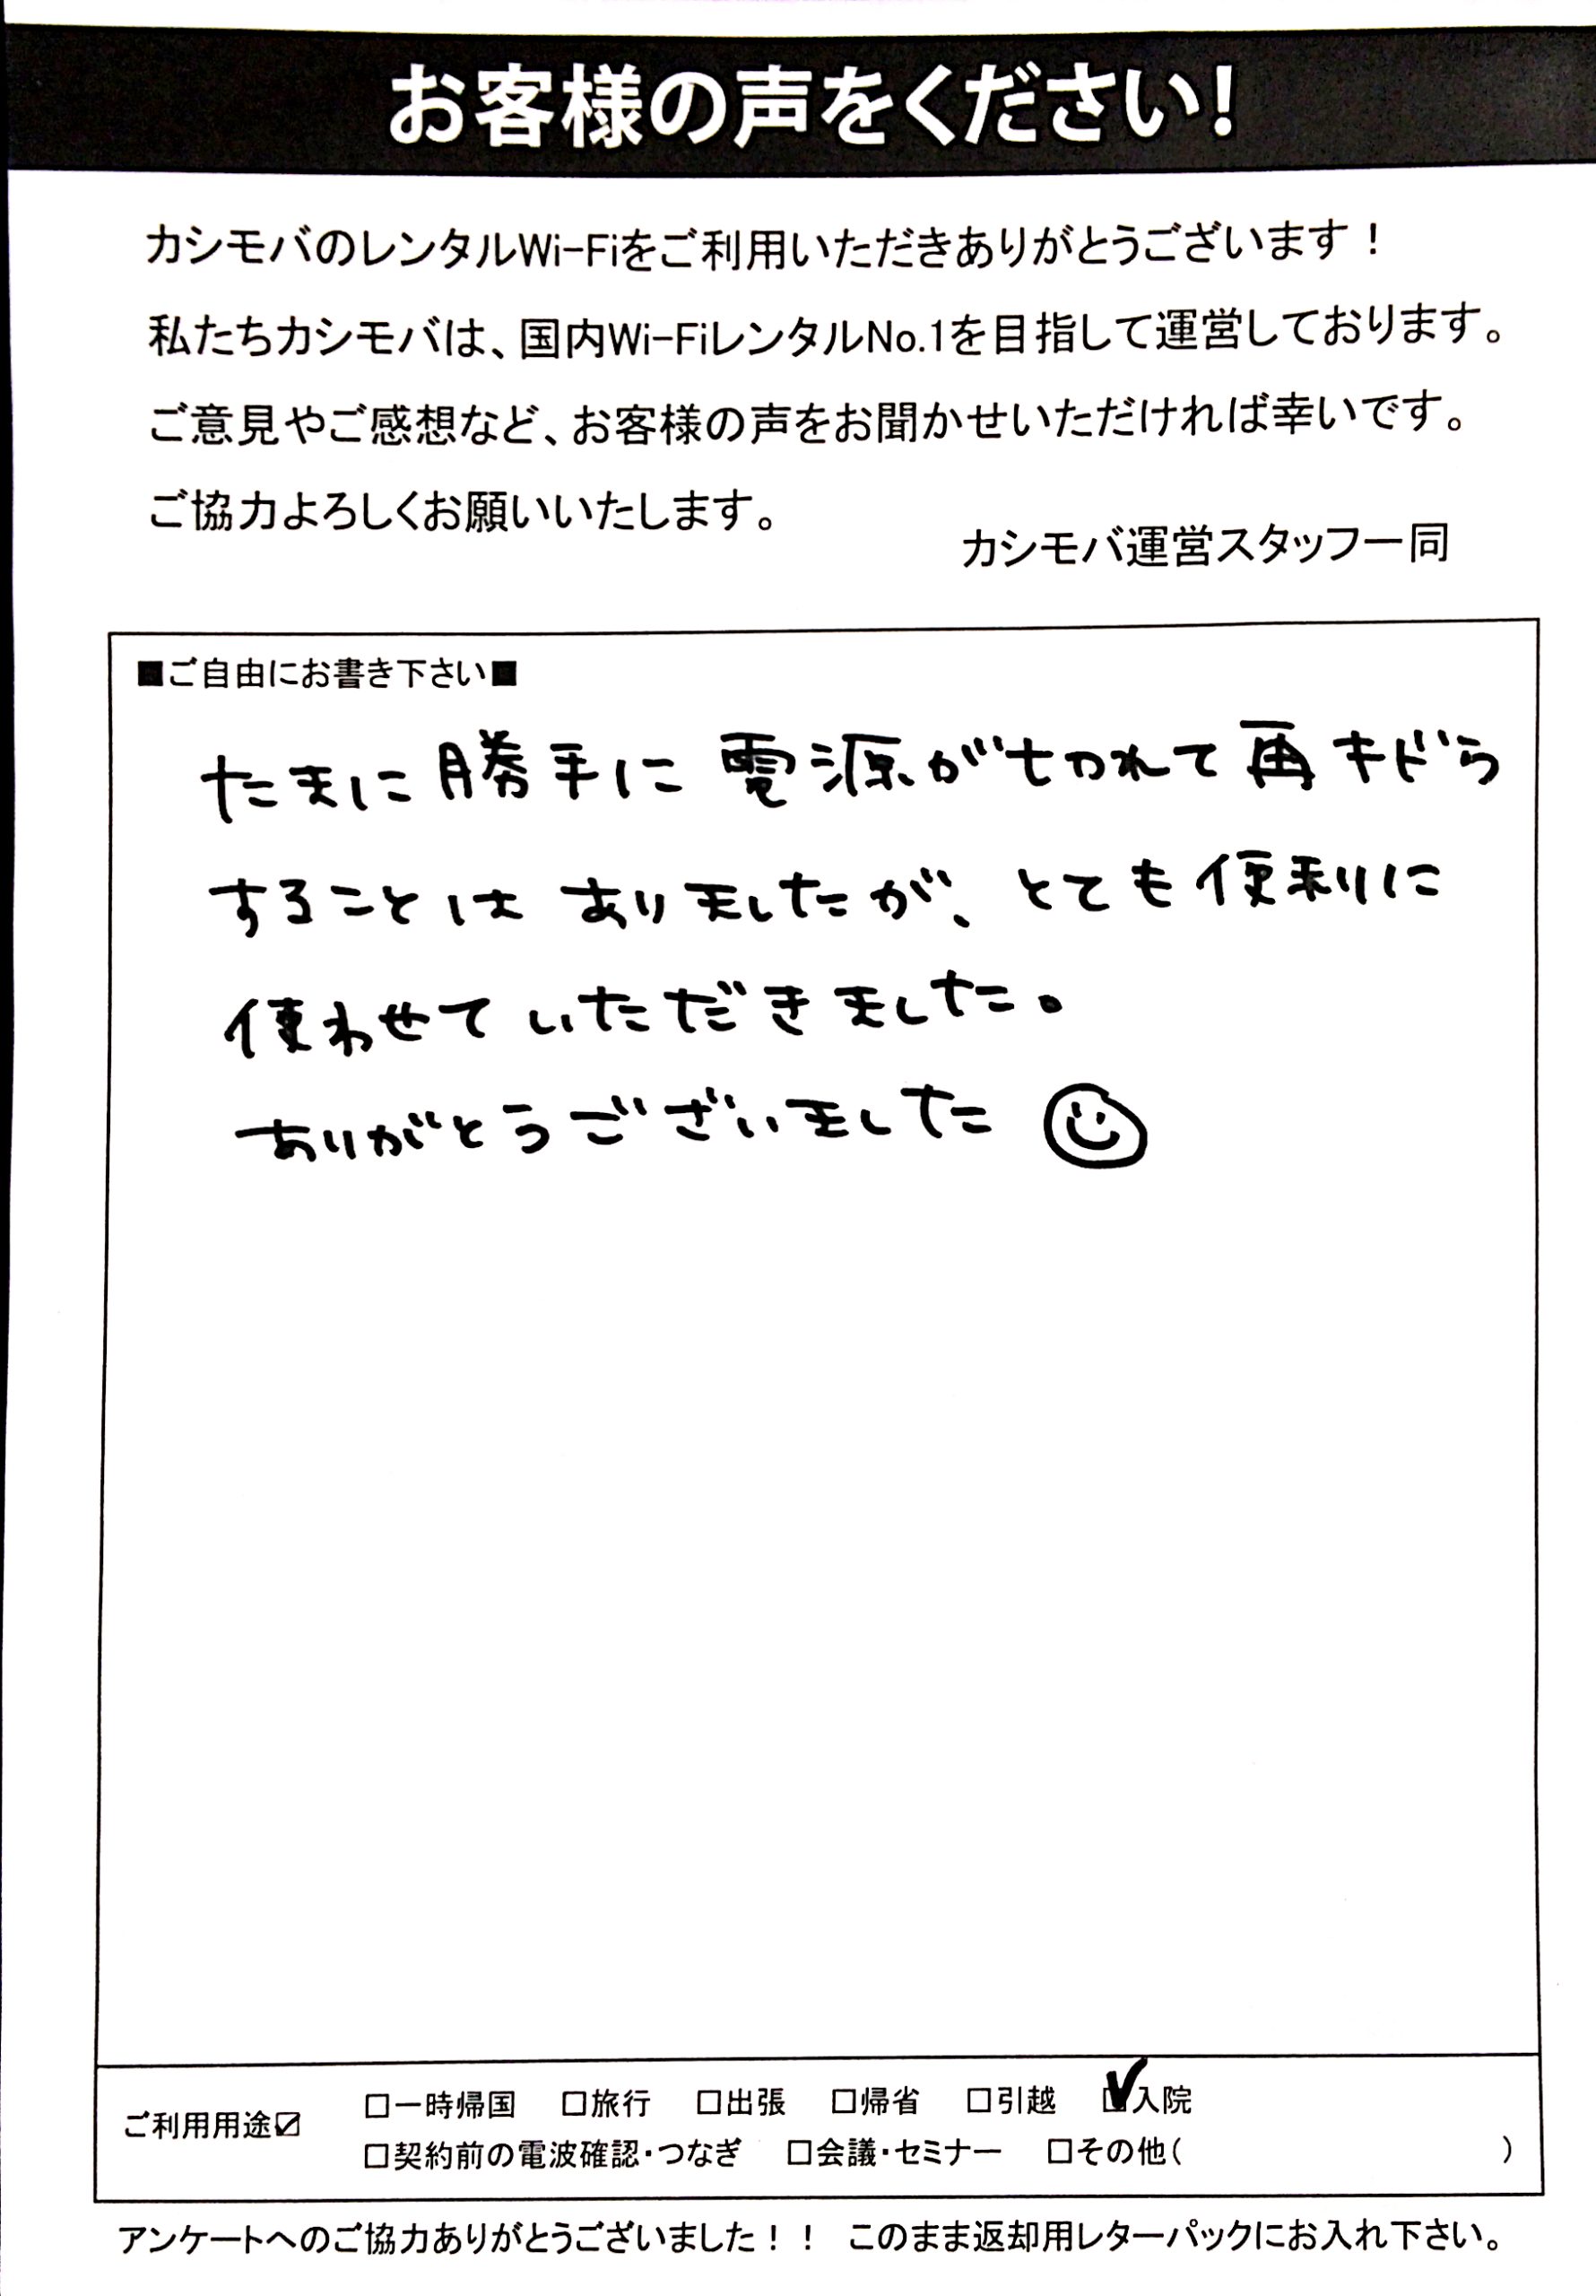 お客様の声をください！
カシモバのレンタルWi-Fiをご利用いただきありがとうございます！
私たちカシモバは、国内Wi-FiレンタルNo.1を目指して運営しております。
ご意見やご感想など、お客様の声をお聞かせいただければ幸いです。
ご協力よろしくお願いいたします。
カシモバ運営スタッフ一同
■ご自由にお書き下さい■
たまに勝手に電源が切れて再キドら
することはありましたが、とても便利に
使わせていただきました。
ありがとうございました
ご利用用途☑
□一時帰国 □旅行 □出張 □帰省 □引越 ☑入院
□契約前の電波確認・つなぎ □会議・セミナー □その他( )
アンケートへのご協力ありがとうございました！！ このまま返却用レターパックにお入れ下さい。